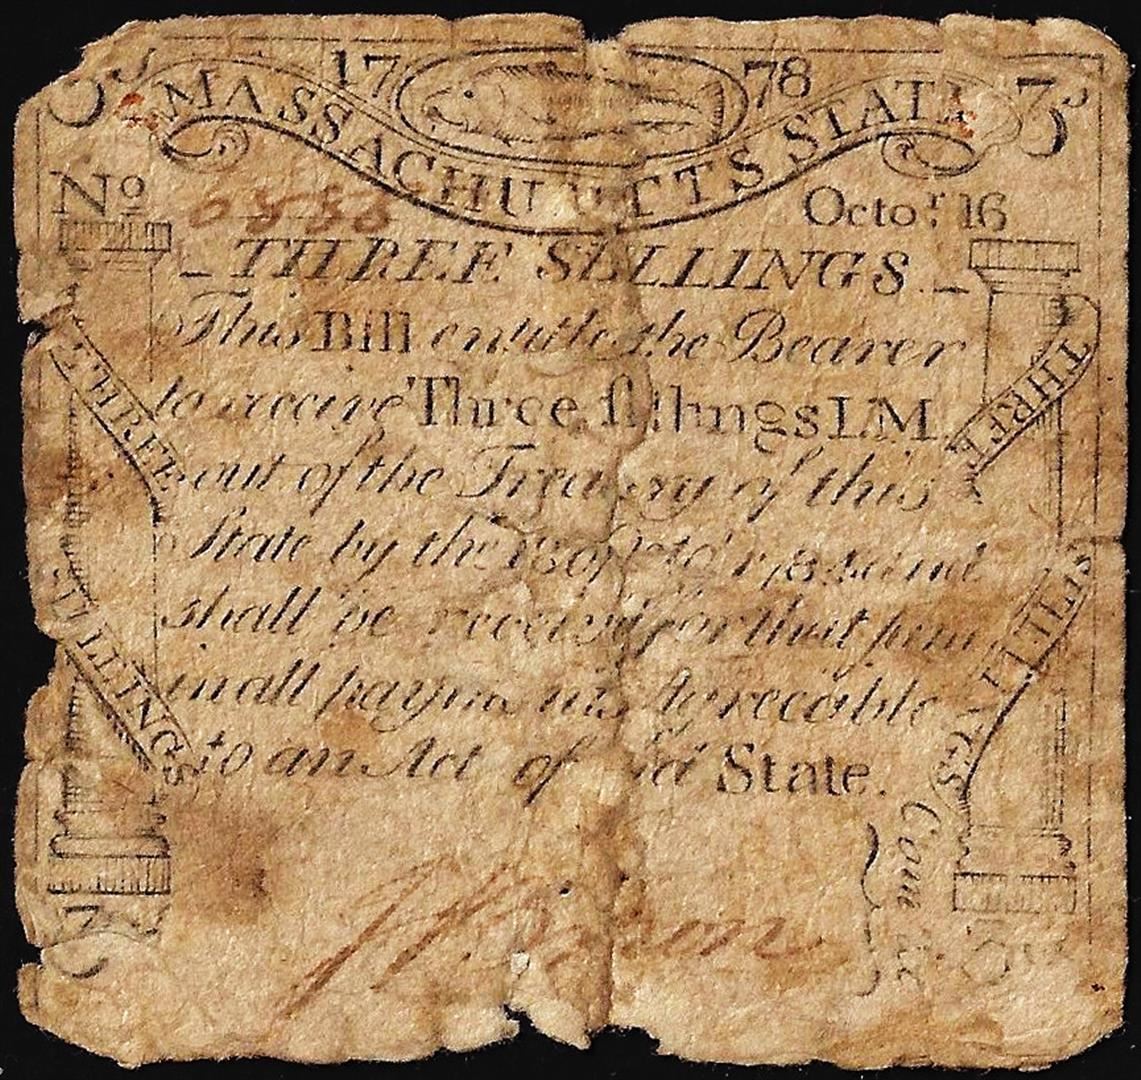 3s 1778 3s
MASSACHUSETTS STATE
No 6838 Octo.r 16
THREE SHILLINGS
This Bill entitle the Bearer
to receive Three shillings LM.
out of the Treasury of this
State by the and
shall be received for that sum
in all payments Agreeable
to an Act of sd State.
THREE
SHILLINGS
THREE
SHILLINGS
Com
3